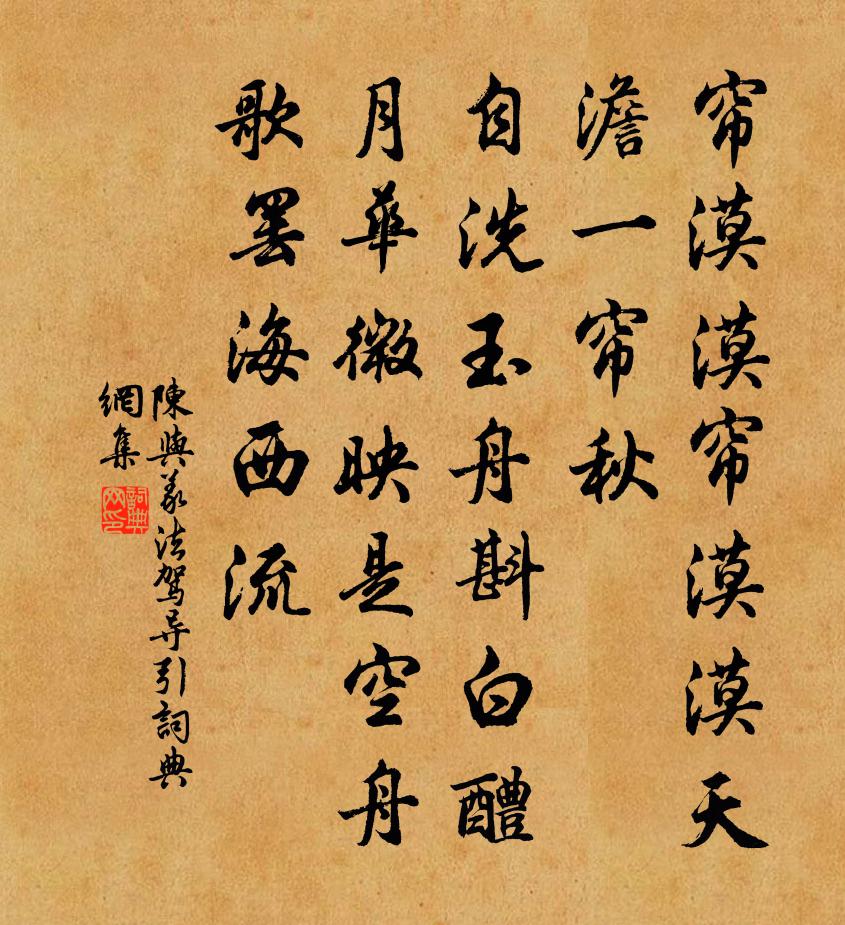 帘漠漠帘漠漠天
澹一帘秋
自洗玉舟斟白醴
月華微映是空舟
歌罢海西流
陳與義法驾导引詞典
網集
詞典
网印